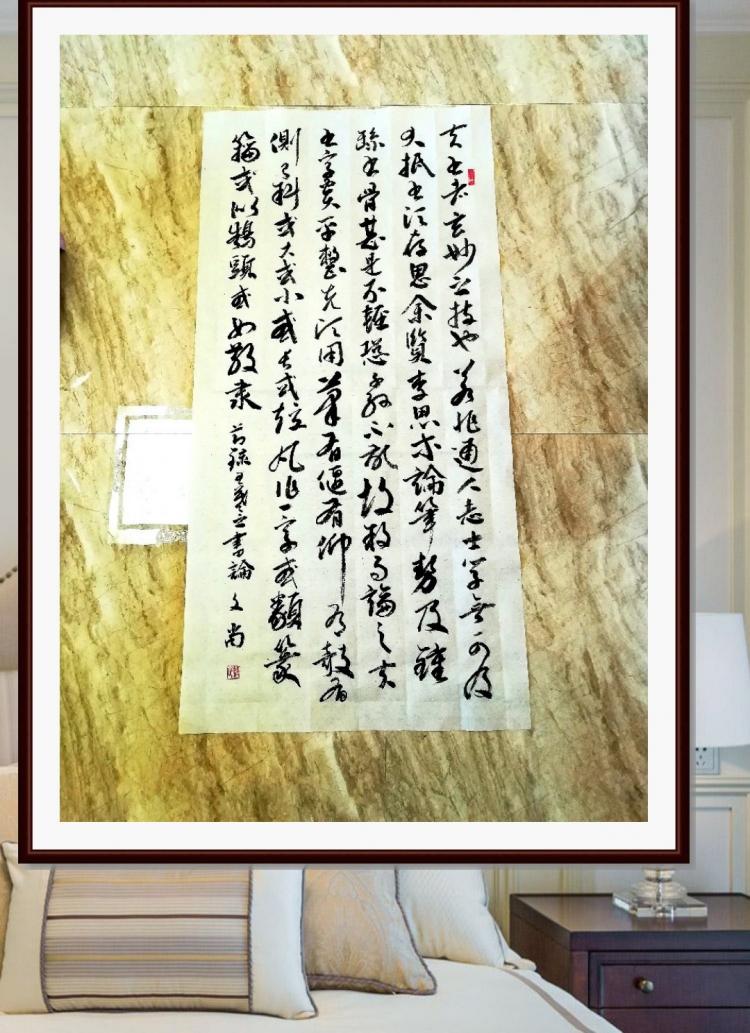 夫書者玄妙之技也若非通人志士學無可及
大抵書須存思余覽李思等論筆勢及鍾
繇書骨甚是不輕恐子孫不記故敘而論之夫
書字貴平整先須用筆有偃有仰有敧有
側有斜或大或小或長或短凡作一字或類篆
籀或似鵠頭或如散隸 節錄王羲之書論 文尚